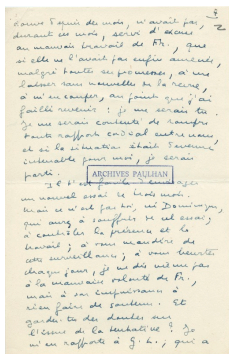 depuis six mois, n'avait pas,
durant six mois, servi d'excuse
au mauvais travail de Fr., que
si elle ne l'avait pas enfin
malgré toutes ses promesses, à me
laisser sans nouvelles
à m'en , au point que j'ai
failli revenir : je me serais tu.
Je me serais contenté de rompre
tout rapport cordial entre nous
et si la situation était devenue
intenable pour moi, je serais
parti.
ARCHIVES PAULHAN
Il
un nouvel essai de trois mois.
Mais ce n'est pas toi, ni Dominique,
qui aurez à souffrir de cet essai,
à contrôler la présence et le
travail ; à vous maudire de
cette surveillance ; à vous heurter
chaque jour, je ne dis même pas
à la mauvaise volonté de Fr.,
mais à son impuissance à
rien faire de soutenu. Et
gardes-tu des doutes sur
l'issue de la tentative ? Je
m'en rapporte à G. L., qui a